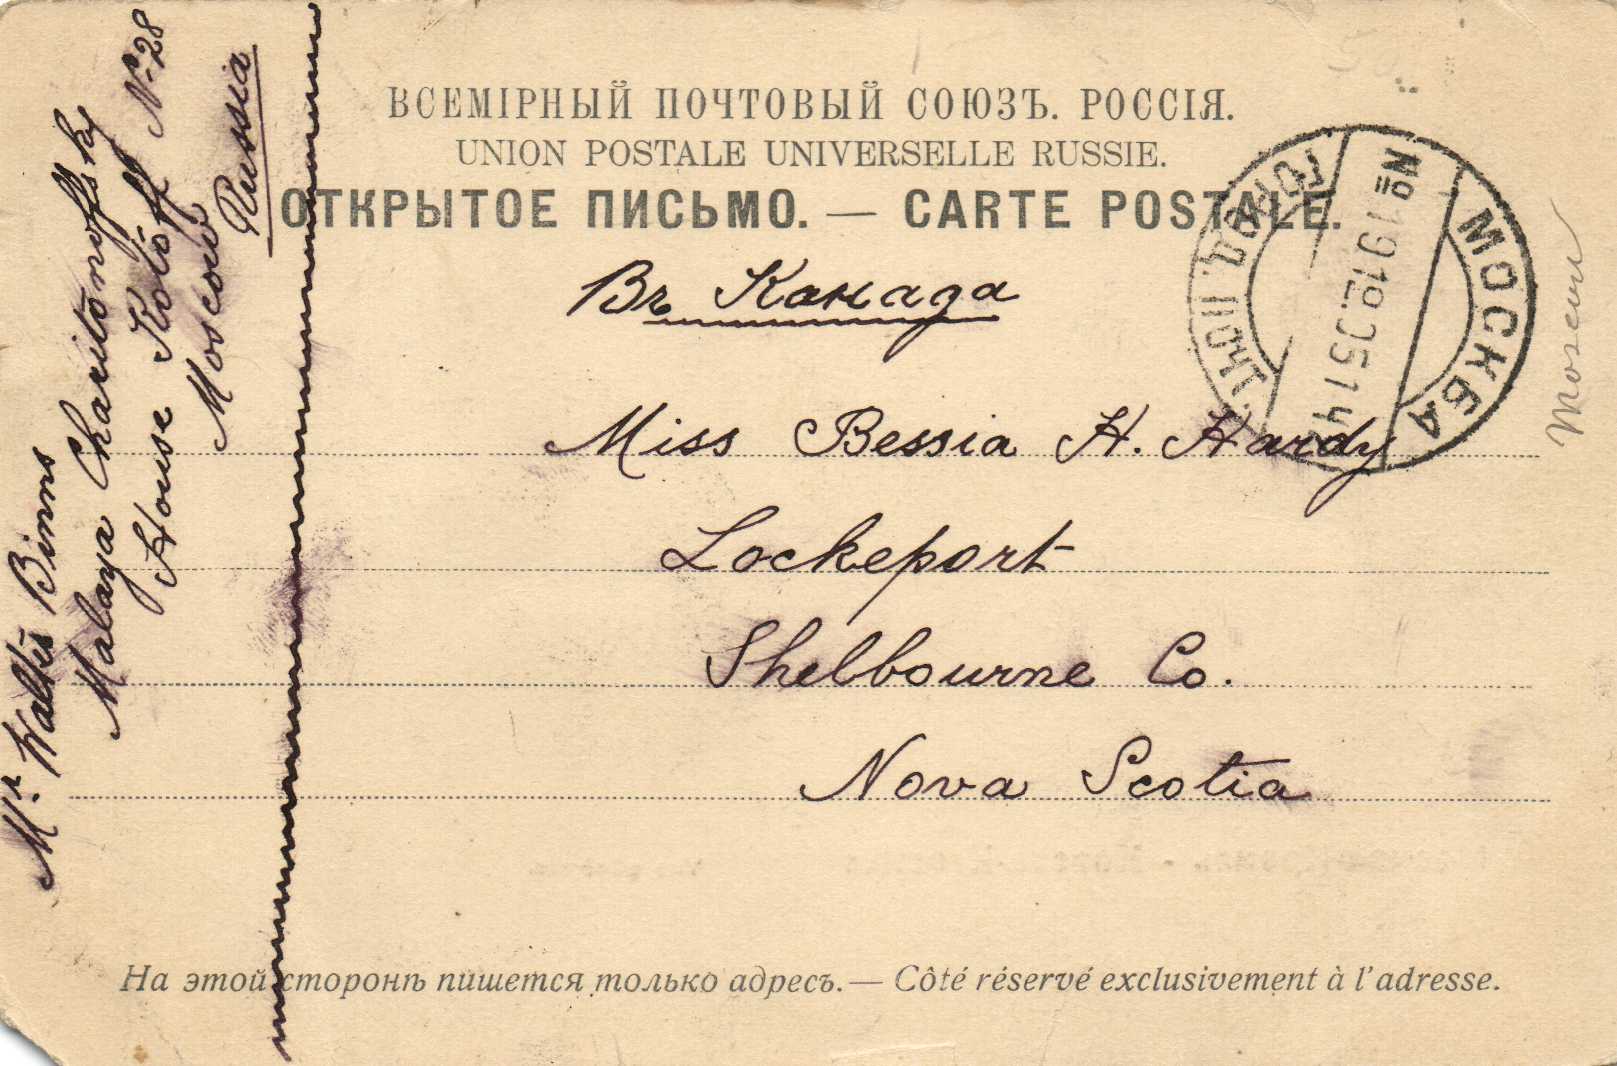 ВСЕМІРНЫЙ ПОЧТОВЫЙ СОЮЗЪ. РОССІЯ.
UNION POSTALE UNIVERSELLE RUSSIE.
ОТКРЫТОЕ ПИСЬМО. — CARTE POSTALE.
Въ Канада
Miss Bessia H. Hardy
Lockeport
Shelbourne Co.
Nova Scotia
На этой сторонѣ пишется только адресъ. — Côté réservé exclusivement à l'adresse.
Mr. Walter Binns
Malaya Charitonoffsky
House Rotoff N-28
Moscow
Russia
МОСКВА
ГОРОД. ПОЧТ.
Moscow